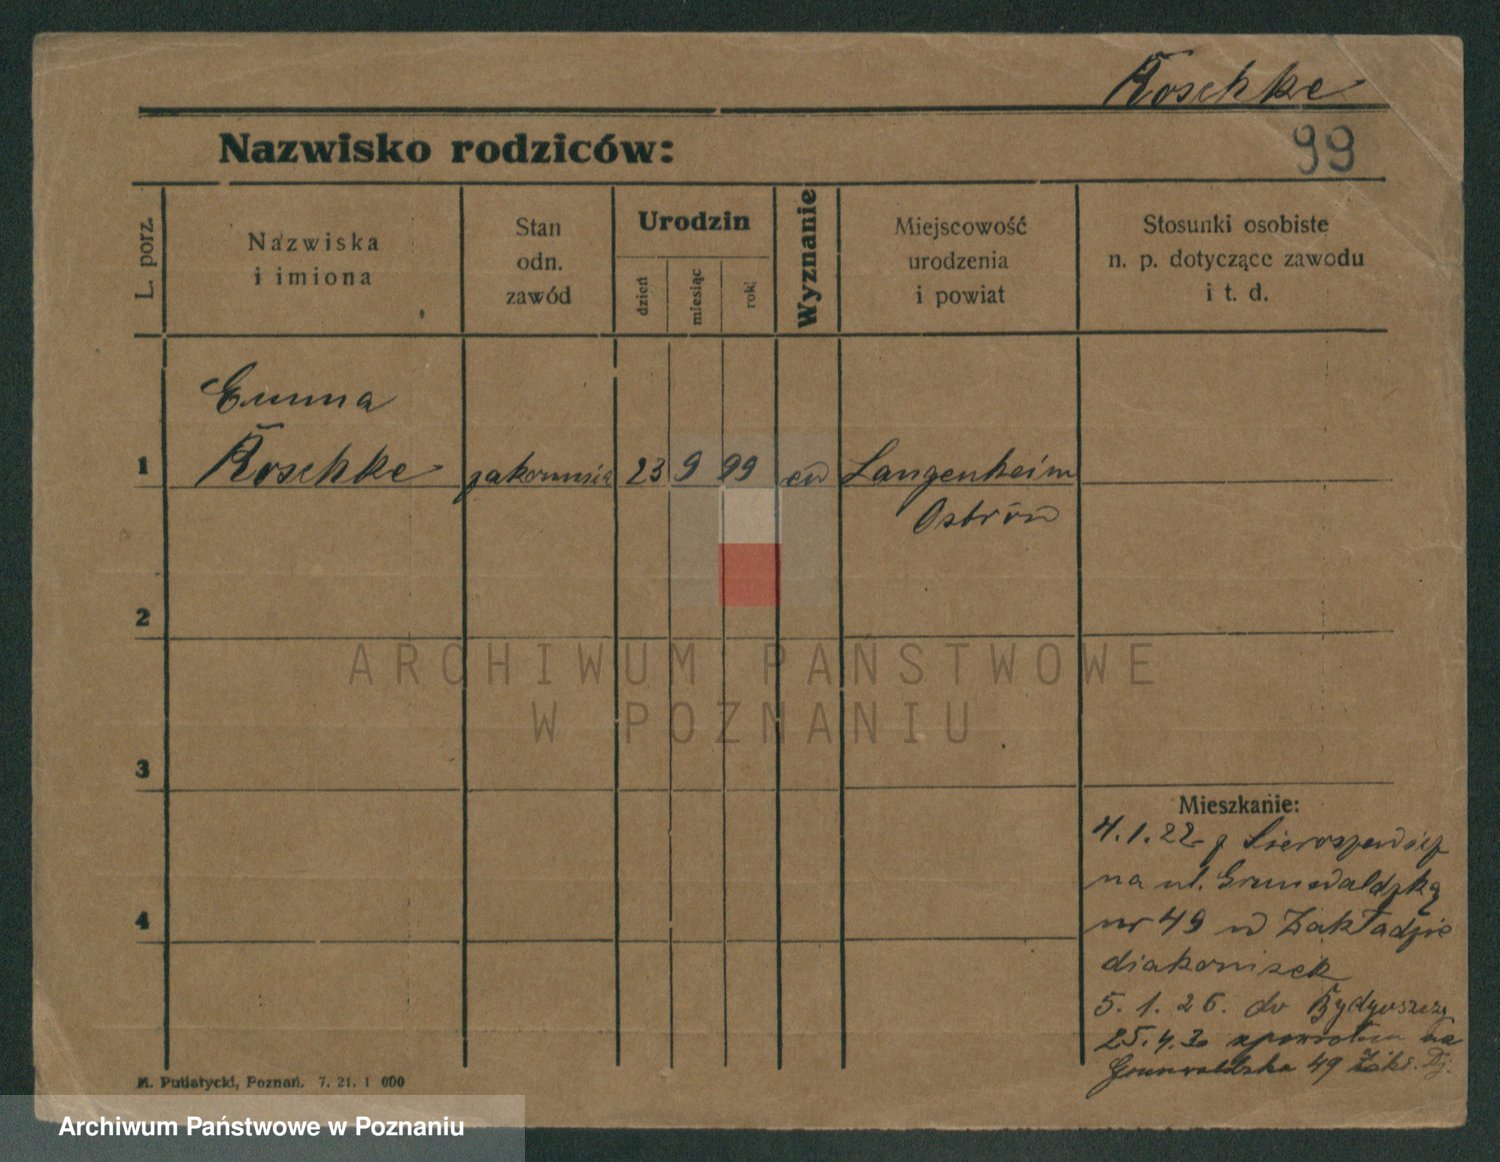 Roschke
99
Nazwisko rodziców:
L. porz.
Nazwiska
i imiona
Stan
odn.
zawód
Urodzin
dzień
miesiąc
rok
Wyznanie
Miejscowość
urodzenia
i powiat
Stosunki osobiste
n. p. dotyczące zawodu
i t. d.
Emma
1 Roschke zakonnica 23 9 99 ew Langenheim
Ostrów
2
ARCHIWUM PAŃSTWOWE
W POZNANIU
3
Mieszkanie:
4.1.22 z
na ul. Grunwaldzką
4 nr 49 w Zakładzie
diakonisek
5. 1. 26. do Bydgoszczy
25.4.30 spowrotem na
Grunwaldzka 49 Zakł. Dj.
M. Putiatycki, Poznań. 7. 21. 1 000
Archiwum Państwowe w Poznaniu